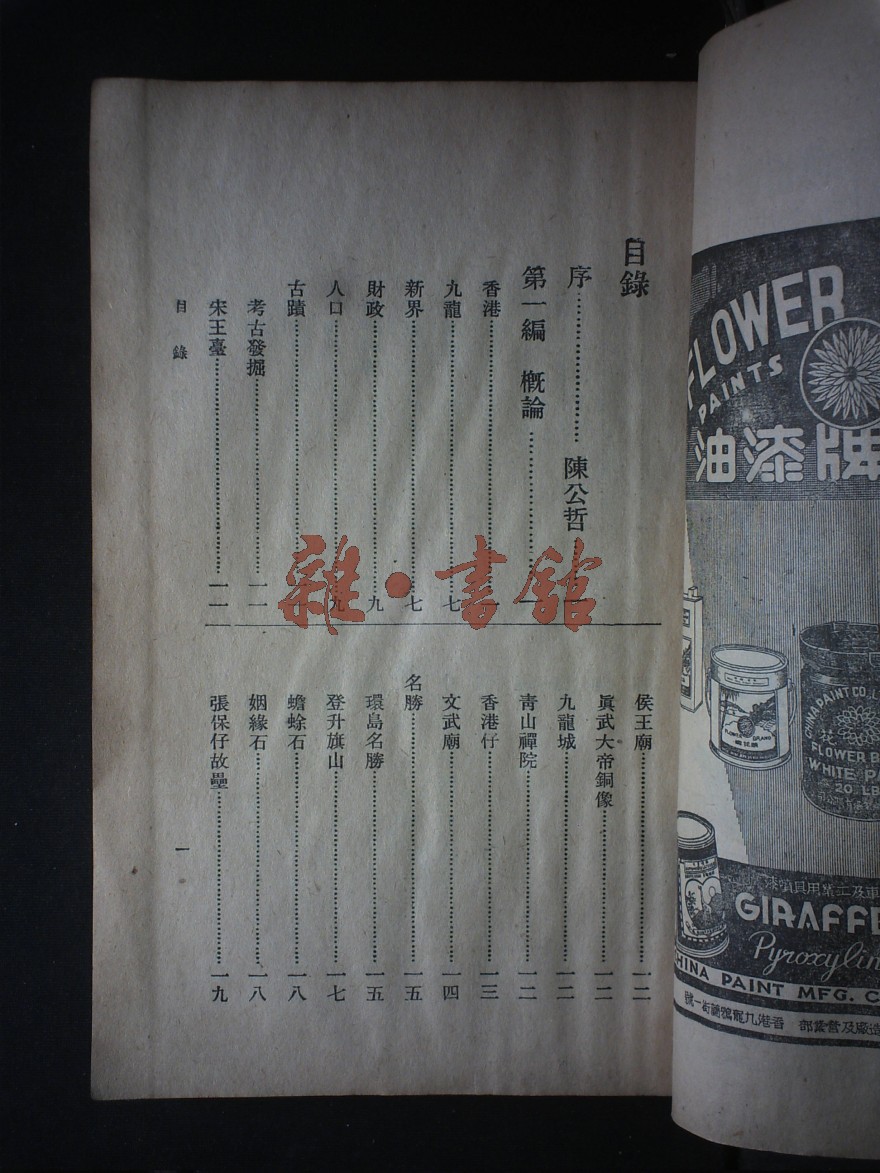 目錄
序 陳公哲
第一編 概論 一
香港 一
九龍 七
新界 七
財政 九
人口 九
古蹟
考古發掘 一一
宋王臺 一一
侯王廟 一二
眞武大帝銅像 一二
九龍城 一二
靑山禪院 一二
香港仔 一三
文武廟 一四
名勝 一五
環島名勝 一五
登升旗山 一七
蟾蜍石 一八
姻緣石 一八
張保仔故壘 一九
目錄
一
雜·書舘
FLOWER
PAINTS
油漆牌
CHINA PAINT CO.
FLOWER B
WHITE PA
20 LB
車及工業用具噴漆
GIRAFFE
Pyroxylin
HINA PAINT MFG. C
號一街 香港九龍
造廠及營業部